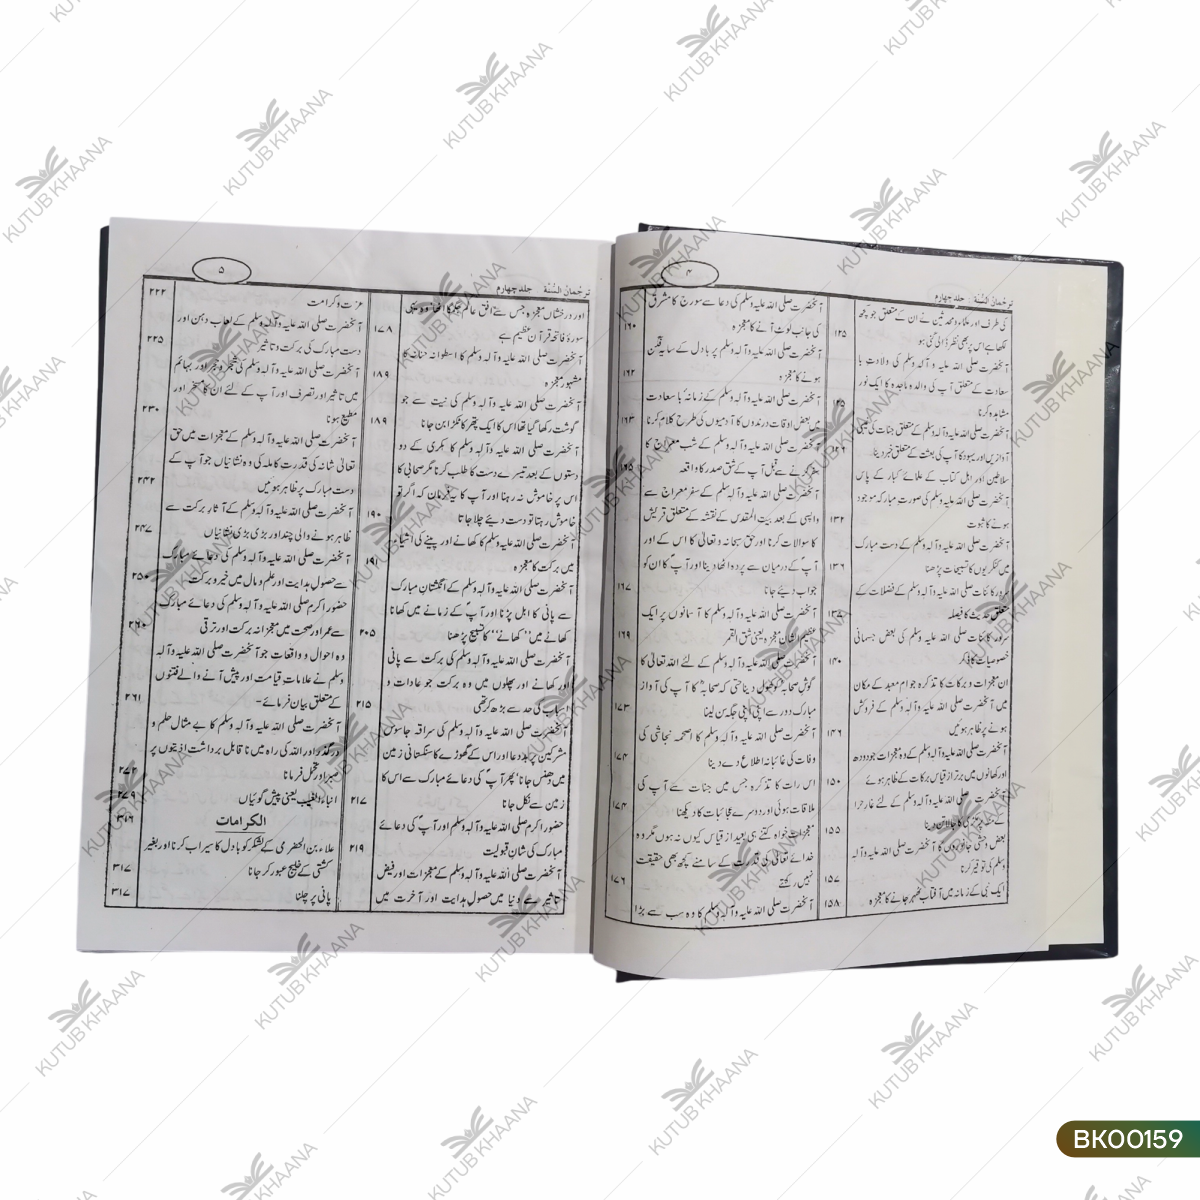 ۴
ترجمان السُّنَّة : جلد چہارم
کی طرف اور علماء و محدثین نے ان کے متعلق جو کچھ
لکھا ہے اس پر بھی نظر ڈالی گئی ہو ۱۲۵
آنحضرت صلی اللہ علیہ وآلہ وسلم کی ولادت با
سعادت کے متعلق آپ کی والدہ ماجدہ کا ایک نور
مشاہدہ کرنا ۱۲۵
آنحضرت صلی اللہ علیہ وآلہ وسلم کے متعلق جنات کی غیبی
آوازیں اور یہود کا آپ کی بعثت کے متعلق خبر دینا ۱۲۶
سلاطین اور اہل کتاب کے علمائے کبار کے پاس
آنحضرت صلی اللہ علیہ وسلم کی صورت مبارک موجود
ہونے کا ثبوت ۱۳۲
آنحضرت صلی اللہ علیہ وآلہ وسلم کے دست مبارک
میں کنکریوں کا تسبیحات پڑھنا ۱۳۶
سرور کائنات صلی اللہ علیہ وآلہ وسلم کے فضلات کے
متعلق حدیث کا فیصلہ ۱۳۵
سرور کائنات صلی اللہ علیہ وسلم کی بعض جسمانی
خصوصیات کا ذکر ۱۴۰
ان معجزات و برکات کا تذکرہ جو ام معبد کے مکان
میں آنحضرت صلی اللہ علیہ وآلہ وسلم کے فروکش
ہونے پر ظاہر ہوئیں ۱۴۶
آنحضرت صلی اللہ علیہ وآلہ وسلم کے وہ معجزات جو دودھ
اور کھانوں میں برتر از قیاس برکات کے ظاہر ہوئے ۱۵۰
آنحضرت صلی اللہ علیہ وآلہ وسلم کے لئے غار حرا
کے منہ پر مکڑی کا جالا تن دینا ۱۵۵
بعض وحشی جانوروں کا آنحضرت صلی اللہ علیہ وآلہ
وسلم کی توقیر کرنا ۱۵۷
ایک نبی کے زمانہ میں آفتاب ٹھہر جانے کا معجزہ ۱۵۸
آنحضرت صلی اللہ علیہ وآلہ وسلم کی دعا سے سورج کا مشرق
کی جانب لوٹ آنے کا معجزہ ۱۶۰
آنحضرت صلی اللہ علیہ وآلہ وسلم پر بادل کے سایہ فگن
ہونے کا معجزہ ۱۶۲
آنحضرت صلی اللہ علیہ وآلہ وسلم کے زمانہ با سعادت
میں بعض اوقات درندوں کا آدمیوں کی طرح کلام کرنا ۱۶۳
آنحضرت صلی اللہ علیہ وآلہ وسلم کے شب معراج کا
سفر کرنے سے قبل آپ کے شق صدر کا واقعہ ۱۶۵
آنحضرت صلی اللہ علیہ وآلہ وسلم کے سفر معراج سے
واپسی کے بعد بیت المقدس کے نقشہ کے متعلق قریش
کا سوالات کرنا اور حق سبحانہ و تعالیٰ کا اس کے اور
آپ کے درمیان سے پردہ اٹھا دینا اور آپ کا ان کو
جواب دیئے جانا ۱۶۷
آنحضرت صلی اللہ علیہ وآلہ وسلم کا آسمانوں پر ایک
عظیم الشان معجزہ یعنی شق القمر ۱۶۹
آنحضرت صلی اللہ علیہ وآلہ وسلم کے لئے اللہ تعالیٰ کا
گوش صحابہ کو کھول دینا حتی کہ صحابہ کا آپ کی آواز
مبارک دور سے اپنی اپنی جگہ سن لینا ۱۷۳
آنحضرت صلی اللہ علیہ وآلہ وسلم کا اصحمہ نجاشی کی
وفات کی غائبانہ اطلاع دے دینا ۱۷۴
اس رات کا تذکرہ جس میں جنات سے آپ کی
ملاقات ہوئی اور دوسرے عجائبات کا دیکھنا ۱۷۴
معجزات خواہ کتنے ہی بعید از قیاس کیوں نہ ہوں مگر وہ
خدائے تعالیٰ کی قدرت کے سامنے کچھ بھی حقیقت
نہیں رکھتے ۱۷۶
آنحضرت صلی اللہ علیہ وآلہ وسلم کا وہ سب سے بڑا
۵
ترجمان السُّنَّة : جلد چہارم
اور درخشاں معجزہ جس سے افق عالم جگمگا اٹھا وہ یہی
سورۂ فاتحہ قرآن عظیم ہے ۱۷۸
آنحضرت صلی اللہ علیہ وآلہ وسلم کا اسطوانہ حنانہ کا
مشہور معجزہ ۱۸۹
آنحضرت صلی اللہ علیہ وآلہ وسلم کی نیت سے جو
گوشت رکھا گیا تھا اس کا ایک پتھر کا ٹکڑا بن جانا ۱۸۹
آنحضرت صلی اللہ علیہ وآلہ وسلم کا بکری کے دو
دستوں کے بعد تیسرے دست کا طلب کرنا مگر صحابی کا
اس پر خاموش نہ رہنا اور آپ کا یہ فرمان کہ اگر تو
خاموش رہتا تو دست دیئے چلا جاتا ۱۹۰
آنحضرت صلی اللہ علیہ وآلہ وسلم کا کھانے اور پینے کی اشیاء
میں برکت کا معجزہ ۱۹۱
آنحضرت صلی اللہ علیہ وآلہ وسلم کے انگشتان مبارک
سے پانی کا ابل پڑنا اور آپ کے زمانے میں کھانا
کھانے میں ''کھانے'' کا تسبیح پڑھنا ۲۰۵
آنحضرت صلی اللہ علیہ وآلہ وسلم کی برکت سے پانی
اور کھانے اور پھلوں میں وہ برکت جو عادات و
اسباب کی حد سے بڑھ کر تھی ۲۱۵
آنحضرت صلی اللہ علیہ وآلہ وسلم کی سراقہ جاسوس
مشرکین پر بددعا اور اس کے گھوڑے کا سنگستانی زمین
میں دھنس جانا پھر آپ کی دعائے مبارک سے اس کا
زمین سے نکل جانا ۲۱۷
حضور اکرم صلی اللہ علیہ وآلہ وسلم اور آپ کی دعائے
مبارک کی شان قبولیت ۲۱۹
آنحضرت صلی اللہ علیہ وآلہ وسلم کے معجزات اور فیض
تاثیر سے دنیا میں حصول ہدایت اور آخرت میں
عزت و کرامت ۲۲۲
آنحضرت صلی اللہ علیہ وآلہ وسلم کے لعاب دہن اور
دست مبارک کی برکت و تاثیر ۲۲۵
آنحضرت صلی اللہ علیہ وآلہ وسلم کی شجر و حجر اور بہائم
میں تاثیر اور تصرف اور آپ کے لئے ان کا مسخر اور
مطیع ہونا ۲۳۰
آنحضرت صلی اللہ علیہ وآلہ وسلم کے معجزات میں حق
تعالیٰ شانہ کی قدرت کاملہ کی وہ نشانیاں جو آپ کے
دست مبارک پر ظاہر ہوئیں ۲۴۲
آنحضرت صلی اللہ علیہ وآلہ وسلم کے آثار برکت سے
ظاہر ہونے والی چند اور بڑی بڑی نشانیاں ۲۴۷
آنحضرت صلی اللہ علیہ وآلہ وسلم کی دعائے مبارک
سے حصول ہدایت اور علم و مال میں خیر و برکت ۲۵۰
حضور اکرم صلی اللہ علیہ وآلہ وسلم کی دعائے مبارک
سے عمر اور صحت میں معجزانہ برکت اور ترقی ۲۶۰
وہ احوال و واقعات جو آنحضرت صلی اللہ علیہ وآلہ
وسلم نے علامات قیامت اور پیش آنے والے فتنوں
کے متعلق بیان فرمائے - ۲۶۱
آنحضرت صلی اللہ علیہ وآلہ وسلم کا بے مثال حلم و
درگذر اور اللہ کی راہ میں نا قابل برداشت اذیتوں پر
صبر اور تحمل فرمانا ۲۷۲
انباء الغیب یعنی پیش گوئیاں ۲۷۹
الکرامات ۳۱۶
علاء بن الحضرمی کے لشکر کو بادل کا سیراب کرنا اور بغیر
کشتی کے خلیج عبور کر جانا ۳۱۷
پانی پر چلنا ۳۱۷
KUTUB KHAANA
BK00159